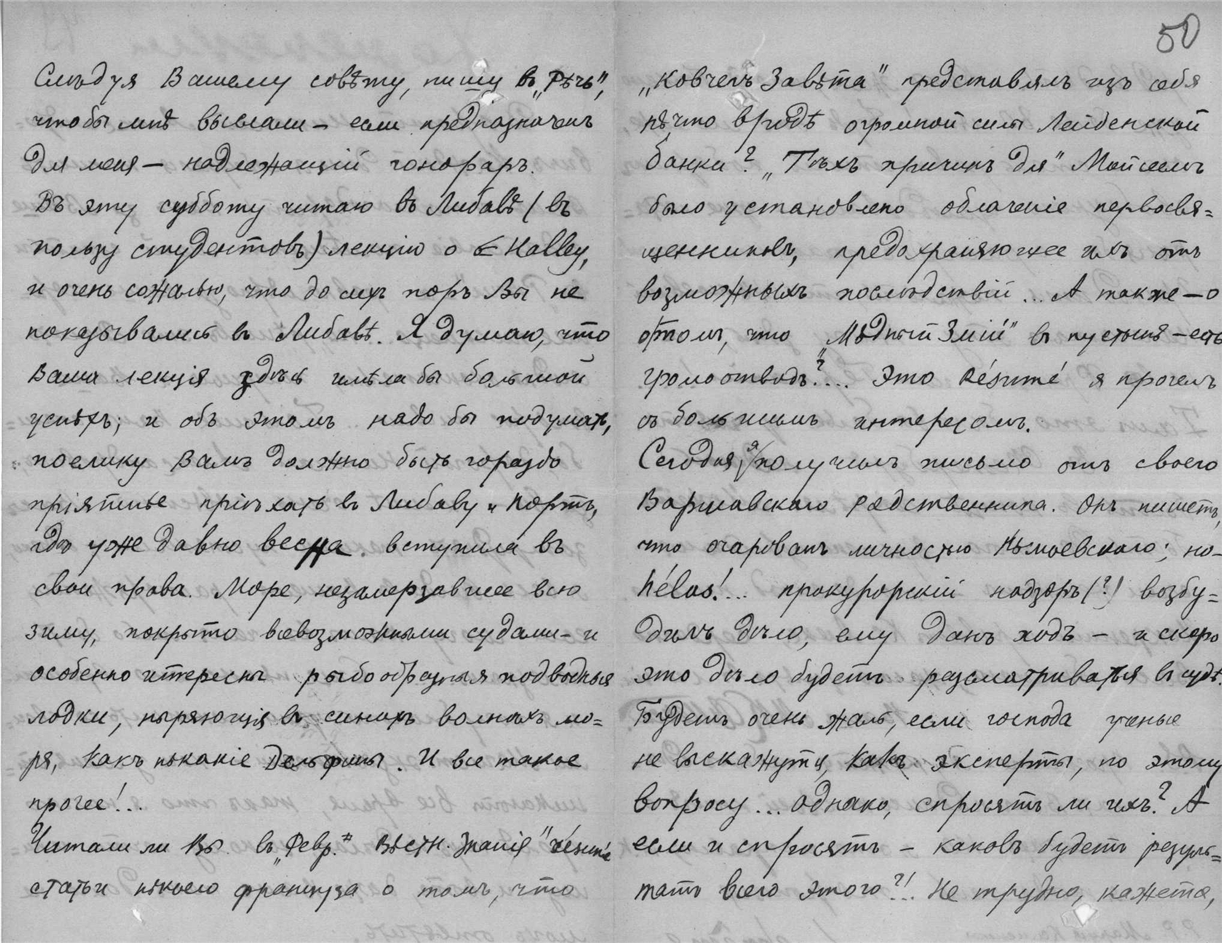 Слѣдуя Вашему совѣту, пишу въ „Рѣчь“,
чтобы мнѣ выслали – если предназначенъ
для меня – надлежащій гонораръ.
Въ эту субботу читаю въ Либавѣ (въ
пользу студентовъ) лекцію о Halley,
и очень сожалѣю, что до сихъ поръ Вы не
показывались въ Либавѣ. Я думаю, что
Ваша лекція здѣсь имѣла бы большой
успѣхъ; и объ этомъ надо бы подумать,
поелику Вамъ должно быть гораздо
пріятнѣе пріѣхать въ Либаву и Портъ,
гдѣ уже давно весна вступила въ
свои права. Море, незамерзавшее всю
зиму, покрыто всевозможными судами – и
особенно итересны рыбообразныя подводныя
лодки, ныряющія въ синихъ волнахъ мо=
ря, какъ нѣкакіе Дельфины. И все такое
прочее!..
Читали ли Вы въ „Февр.“ Вѣстн. Знанія“ résumé
статьи нѣкоего француза о томъ, что
50
„Ковчегъ Завѣта“ представлялъ изъ себя
нѣчто вродѣ огромной силы Лейденской
банки? „Тѣхъ причинъ для“ Мойсеемъ
было установлено облаченіе первосвя=
щенниковъ, предохраняющее ихъ отъ
возможныхъ послѣдствій... А также – о
томъ, что „Мѣдный Змій“ въ пустынѣ – есть
громоотводъ?... Это résumé я прочелъ
съ большимъ интересомъ.
Сегодня я получилъ письмо отъ своего
Варшавскаго родственника. Онъ пишетъ,
что очарованъ личностью Нѣмоевскаго; но –
hélas!... прокурорскій надзоръ (?!) возбу=
дилъ дѣло, ему данъ ходъ – и скоро
это дѣло будетъ разсматриваться въ судѣ.
Будетъ очень жаль, если господа ученые
не выскажутся, какъ эксперты, по этому
вопросу... Однако, спросятъ ли ихъ? А
если и спросятъ – каковъ будетъ резуль=
татъ всего этого?!. Не трудно, кажется,